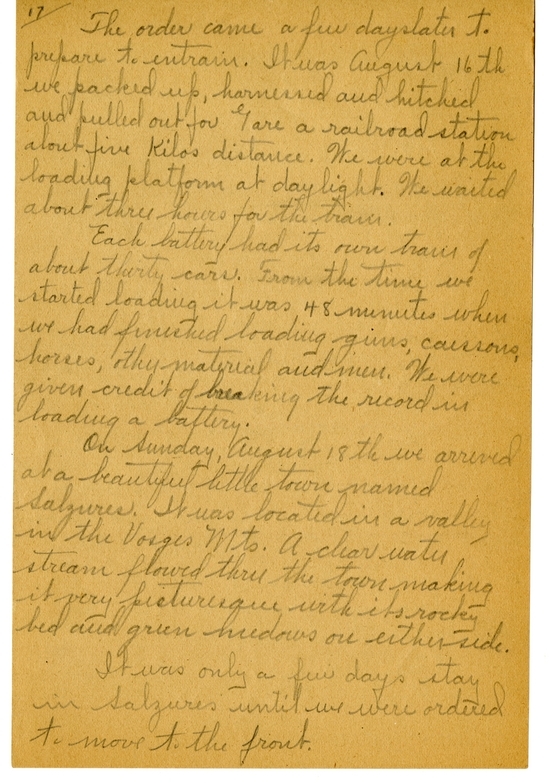 17
The order came a few days later to
prepare to entrain. It was August 16th
we packed up, harnessed and hitched
and pulled out for Gare a railroad station
about five Kilos distance. We were at the
loading platform at daylight. We waited
about three hours for the train.
Each battery had its own train of
about thirty cars. From the time we
started loading it was 48 minutes when
we had finished loading guns, caissons,
horses, other material and men. We were
given credit of breaking the record in
loading a battery.
On Sunday, August 18th we arrived
at a beautiful little town named
Salzures. It was located in a valley
in the Vosges Mts. A clear water
stream flowed thru the town making
it very picturesque with its rocky
bed and green medows on either side.
It was only a few days stay
in Salzures until we were ordered
to move to the front.